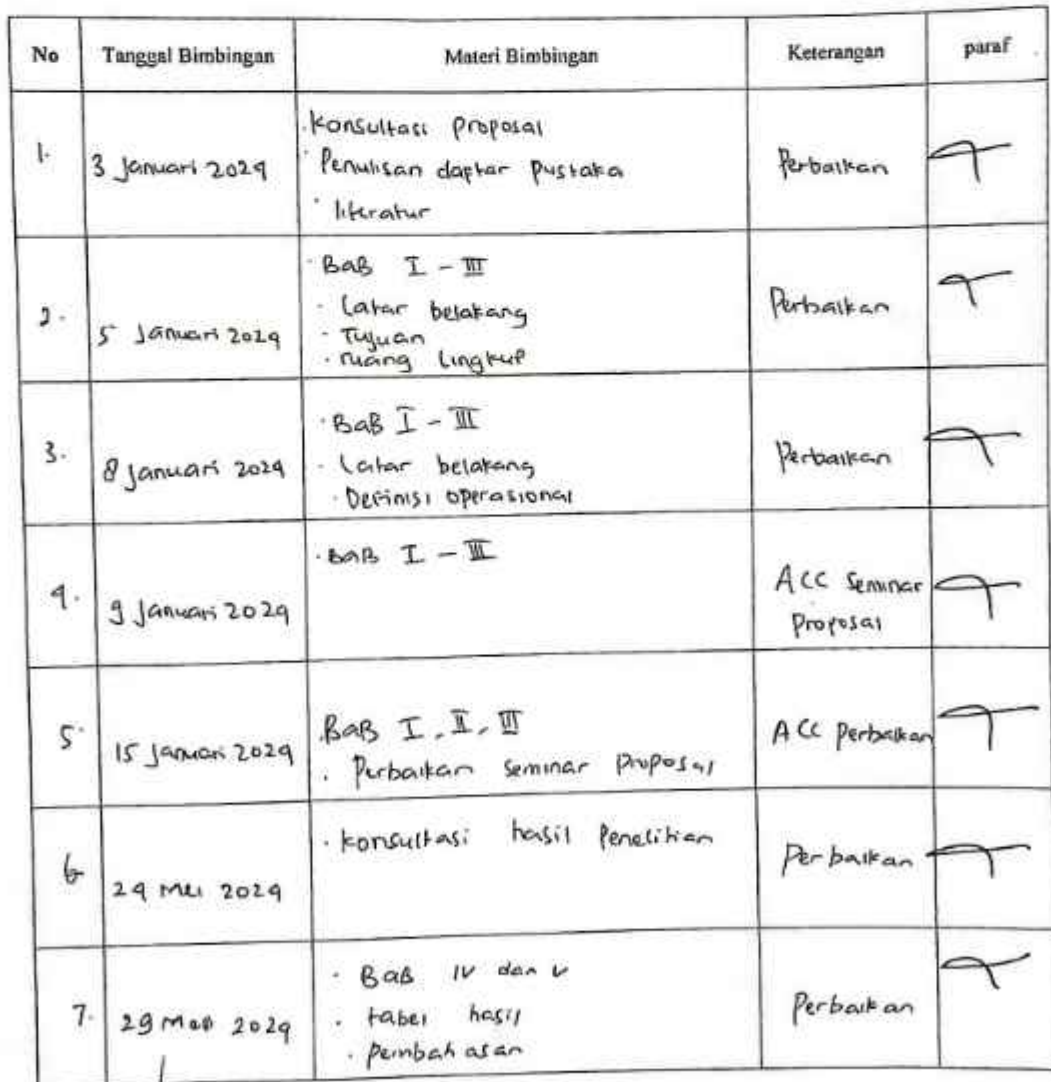 No Tanggal Bimbingan Materi Bimbingan Keterangan paraf
1. 3 Januari 2024
· Konsultasi Proposal
· Penulisan daptar Pustaka
· literatur
Perbaikan
2. 5 Januari 2024
· BaB I - III
· Latar belakang
- Tujuan
· ruang lingkup
Perbaikan
3. 8 Januari 2024
· BaB I - III
· Latar belakang
· Definisi operasional
Perbaikan
4. 9 Januari 2024
· BAB I - III
ACC Seminar
Proposal
5. 15 Januari 2024
BaB I, II, III
· Perbaikan seminar proposal
ACC Perbaikan
6 24 Mei 2024
· konsultasi hasil Penelitian
Perbaikan
7. 29 Mei 2024
· BaB IV dan V
· tabel hasil
· pembahasan
Perbaikan